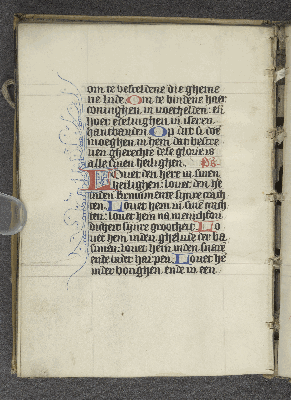 om te besceldene die gheme
ne lude. Om te bindene haer
coninghen in voechelden: eñ
hoer edelinghen in iseren
hantbanden Op dat si doe
moeghen in hem dat bescre
uen gherechte dese glorie is
alle sinen heilighen. Ps
Louet den here in sinen
heilighen: louet den he
inden firmamente sijnre crach
ten. Louet hem in sine crach
ten: louet hem na menichfou
dicheit sijnre grootheit. Lo
uet hem inden ghelude der ba
sunen: louet hem inden snare
ende inder harpen. Louet he
inder bonghen ende in een